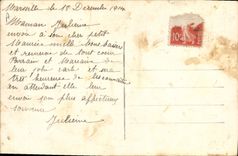 Marseille le 10 Décembre 1914
Maman Juliena
envoie à son cher petit
Maurice mille bons baisers
et remercie de tout coeur
Parrain et Marraine de
leur jolie carte et me
très heureuse de
en attendant elle leur
envoie son plus affectueux
souvenir
Juliena
10